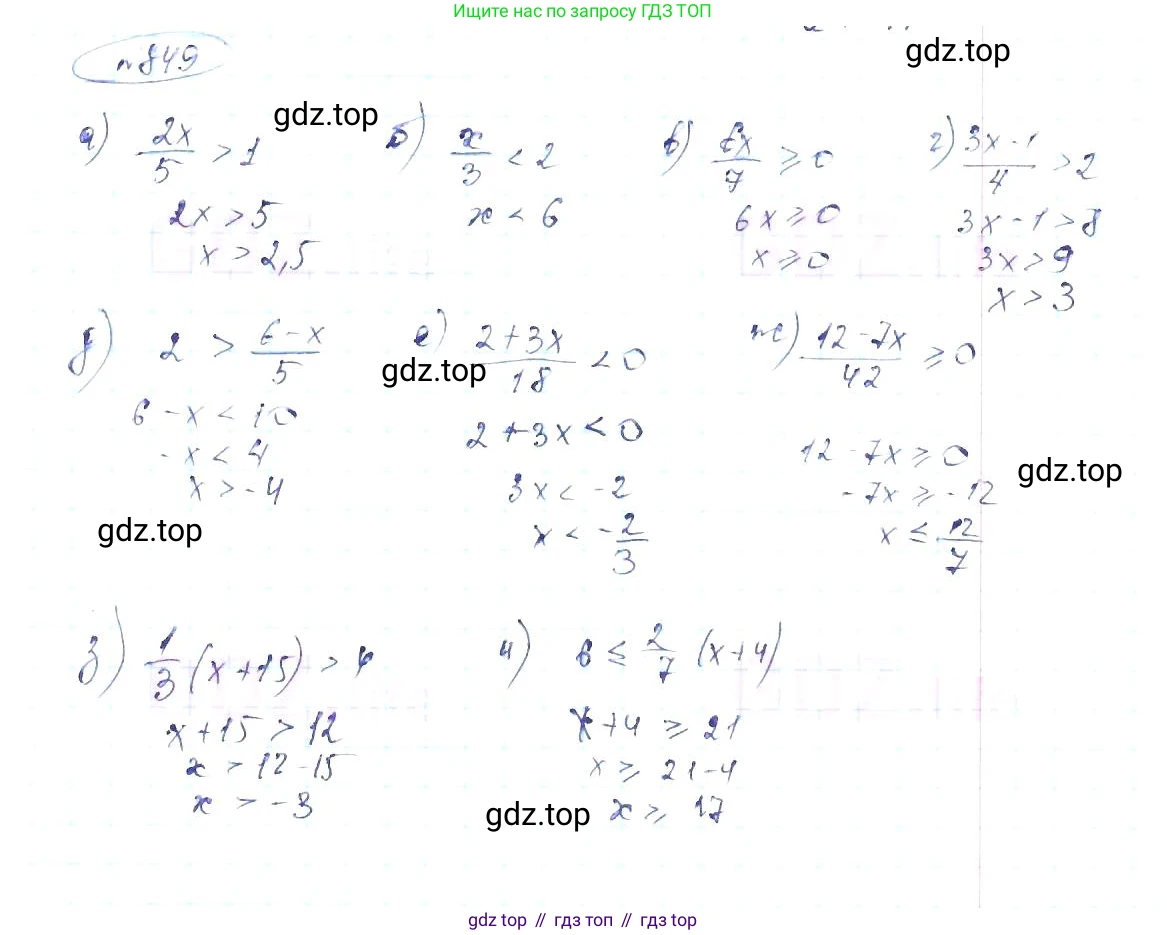 Ищите нас по запросу ГДЗ ТОП
gdz.top
№849
gdz.top
а) 2x/5 > 1
2x > 5
x > 2,5
б) x/3 < 2
x < 6
в) 6x/7 ⩾ 0
6x ⩾ 0
x ⩾ 0
г) 3x - 1/4 > 2
3x - 1 > 8
3x > 9
x > 3
д) 2 > 6 - x/5
6 - x < 10
- x < 4
x > - 4
gdz.top
е) 2 + 3x/18 < 0
gdz.top
2 + 3x < 0
3x < - 2
x < - 2/3
ж) 12 - 7x/42 ⩾ 0
12 - 7x ⩾ 0
gdz.top
- 7x ⩾ - 12
x ≤ 12/7
з) 1/3 (x + 15) > 4
x + 15 > 12
x > 12 - 15
x > - 3
и) 6 ≤ 2/7 (x + 4)
x + 4 ⩾ 21
x ⩾ 21 - 4
gdz.top
x ⩾ 17
gdz top // гдз топ // gdz top